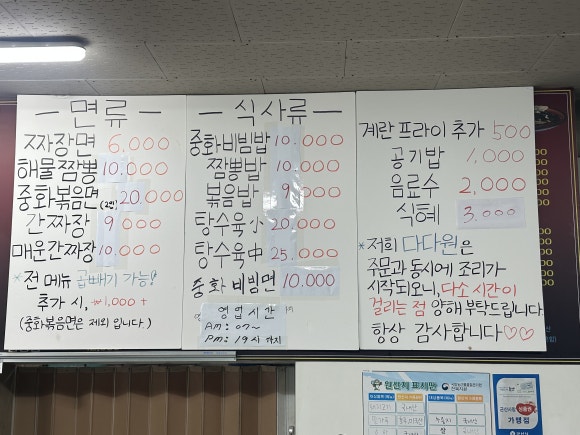 — 면류 —
짜장면 6,000
해물짬뽕 10,000
중화볶음면(2인) 20,000
간짜장 9,000
매운간짜장 10,000
*전 메뉴 곱빼기 가능!
추가 시, ₩1,000 +
(중화볶음면은 제외 입니다.)
— 식사류 —
중화비빔밥 10,000
짬뽕밥 10,000
볶음밥 9,000
탕수육 小 20,000
탕수육 中 25,000
중화 비빙면 10.000
영업시간
AM: 07~
PM: 19시 까지
계란 프라이 추가 500
공기밥 1,000
음료수 2,000
식혜 3.000
*저희 다다원은
주문과 동시에 조리가
시작되오니, 다소 시간이
걸리는 점 양해 부탁드립니다
항상 감사합니다♡♡
원산지 표시판
가맹점